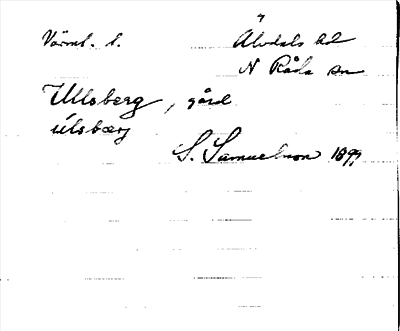 Värml. l. Älvdals hd
N Råda sn
Ullsberg, gård
úlsbærj
S. Samuelsson 1897